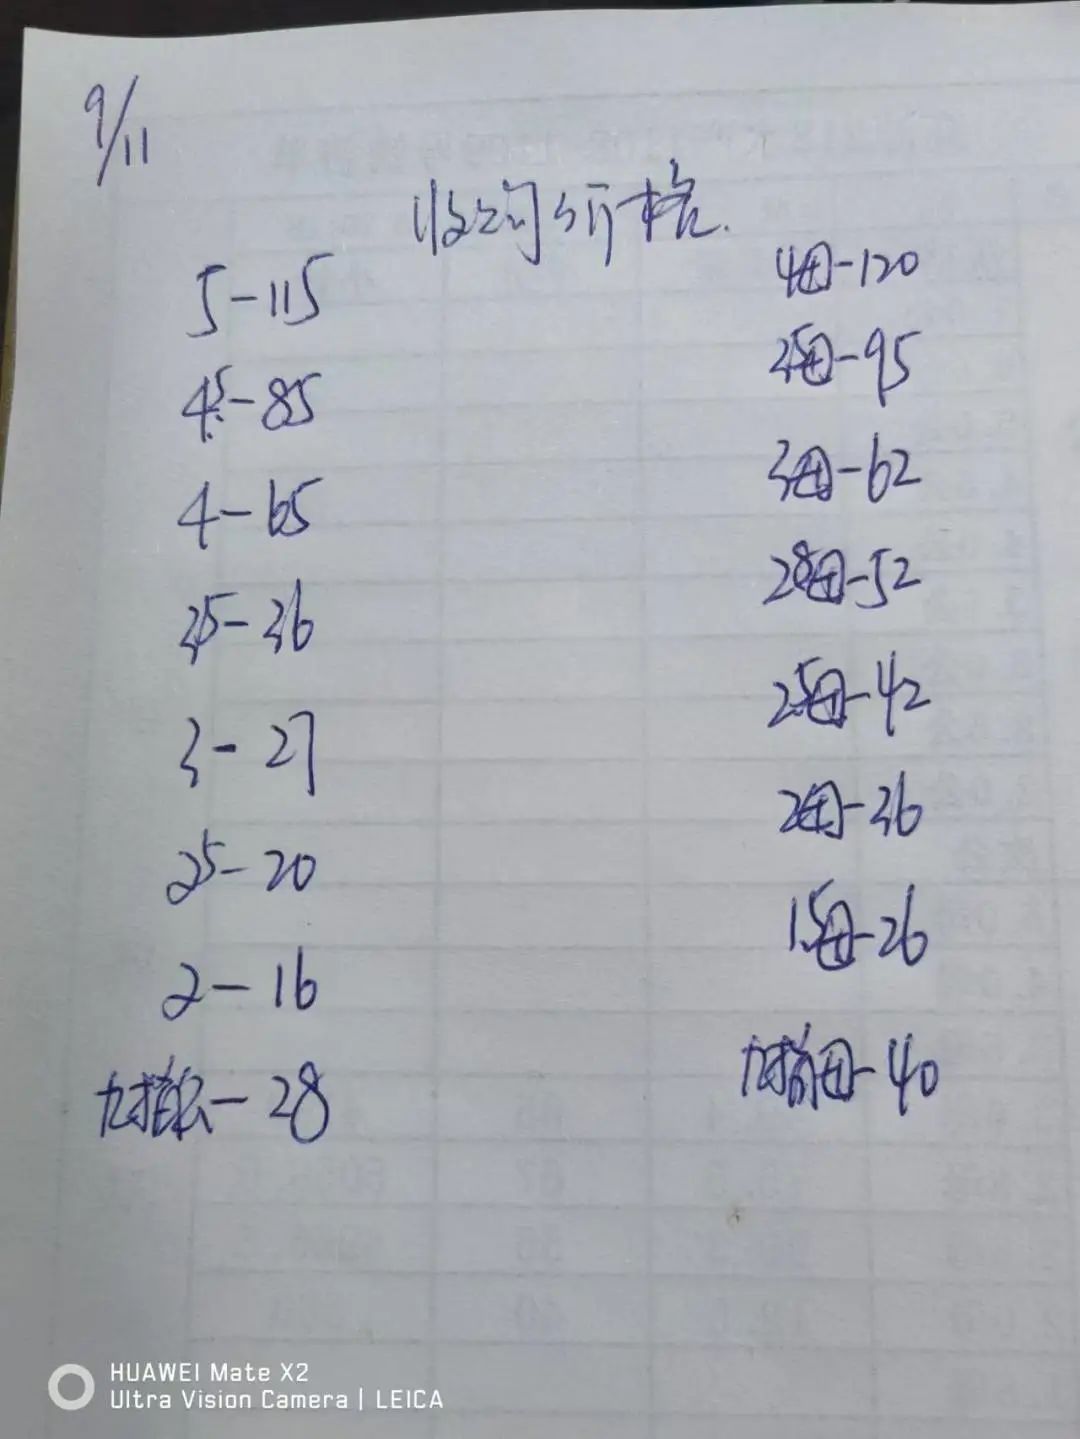 9/11
收购价格.
5-115
4.5-85
4-65
3.5-36
3-27
2.5-20
2-16
公-28
4母-120
3.5母-95
3母-62
2.8母-52
2.5母-42
2母-36
1.5母-26
母-40
HUAWEI Mate X2
Ultra Vision Camera | LEICA